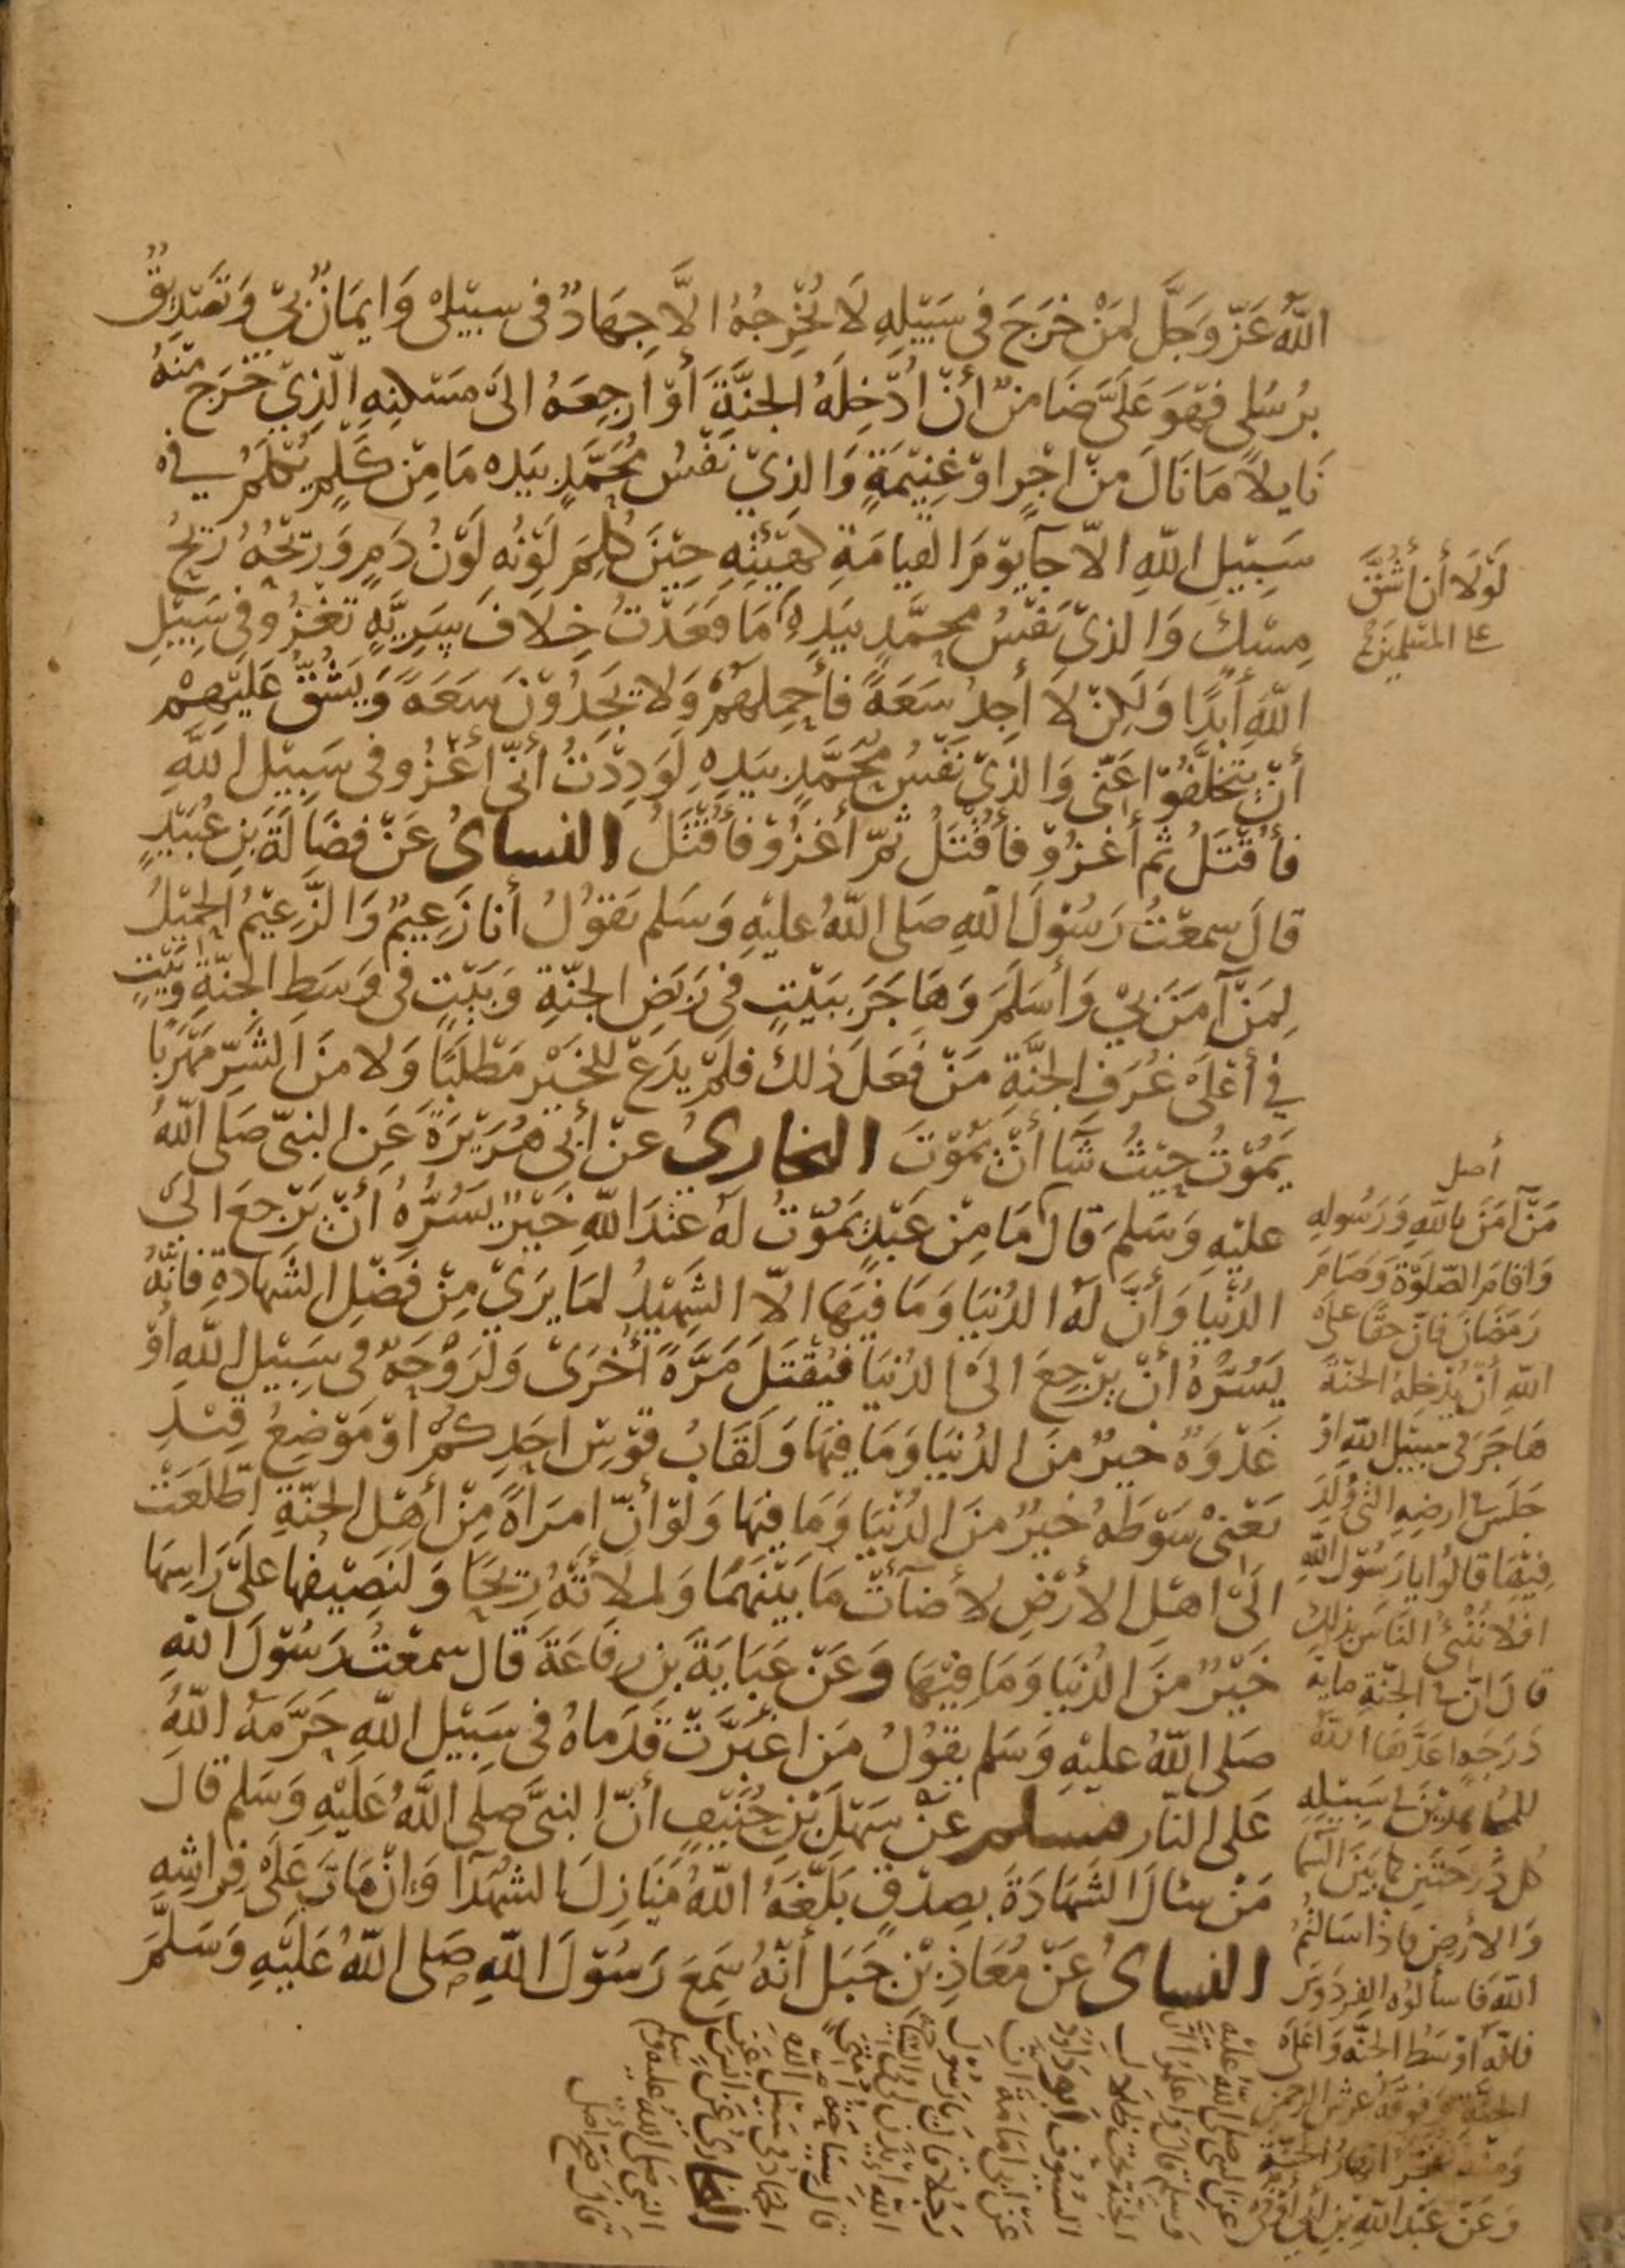 اللهُ عَزّ وَجَلَّ لِمَنْ خَرَجَ فِي سَبِيْلِهِ لَا يُخْرِجُهُ الَّا جِهَادٌ فى سبيْلىْ وَايمَانٌ بىْ وَتَصْدِيْقٌ
بِرُسُلِى فهْوَ عَلَىَّ ضَامِنٌ أنْ اُدْخِلَهُ الجنَّةَ أوْ ارجِعَهُ الىَ مَسْكنِهِ الّذِيْ خَرَجَ منْهُ
نَايلاً مَا نَالَ منْ اجْرٍ اوْ غِنيْمَةٍ وَالذِيْ نَفْسُ مُحَمَّدٍ بيَدِه مَا مِنْ كَلْمٍ يُكْلَمُ في
سَبِيْلِ اللهِ الاّ جآ يوْمَ القيامَةِ كهَيْئَتِهِ حِيْنَ كُلِمَ لَوْنُهِ لَوْنُ دَمٍ وَرِيْحُهُ رِيْحُ
مِسْكٍ وَالذىْ نَفْسُ محمَّدٍ بيَدِهِ مَا قعَدْتُ خِلافَ سَرِيَّةٍ تغْزُو فِى سَبِيْلِ
اللهِ أبَدًا وَلكِنْ لاَ أجِدُ سَعَةً فأحْمِلهُمْ وَلا يجَدُوْنَ سَعَةً وَيَشُقُّ عَليْهِمْ
أنْ يتخلَّفُوْا عَنِّى وَالذىْ نَفْسُ محَمَّدٍ بيَدِهِ لوَدِدْتُ أنىّ أغْزُو فى سَبِيْلِ اللهِ
فأُقْتَلُ ثم أغْزُوْ فأُقْتَلُ ثمّ أغْزُوْ فأُقْتَلُ النساىُ عَنْ فضَالَةَ بْنِ عُبَيْدٍ
قالَ سمعْتُ رَسُوْلَ اللهِ صَلى اللهُ عليْهِ وَسَلم يقوْلُ أنا زَعِيمٌ وَالزَّعِيْمُ الحَمِيْلُ
لِمَنْ آمَنَ بيْ وَأسْلَمَ وَهَاجَرَ ببَيْتٍ فى رَبَضِ الجنّةِ وَبَيْتٍ فى وَسَطِ الجنّةِ وَبَيْتٍ
فى أعْلَى غُرَفِ الجنَّةِ مَنْ فعَلَ ذلكَ فلمْ يدَعْ للخَيْرِ مَطْلَبًا وَلا منَ الشَرِّ مَهْرَبًا
يَمُوْتُ حَيْثُ شَآ أنْ يمُوْتَ البخارىُ عنْ أبى هُرَيْرَةَ عَنِ النبىّ صَلى اللهُ
عليْهِ وَسَلمَ قالَ مَا مِنْ عَبْدٍ يمُوْتُ لهُ عنْدَ اللهِ خَيْرٌ يَسُرُّهُ أنْ يَرْجعَ الىَ
الدُنْيا وَأنَّ لَهُ الدُنيَا وَمَا فيْهَا الاّ الشَهِيْدُ لمَا يرَىْ مِنْ فَضْلِ الشَهادَةِ فانّهُ
يَسُرُّهُ أنْ يرْجِعَ الىَ الدُنيَا فيُقْتَلَ مَرَّةً أُخْرَىْ وَلرَوْحَةٌ فى سَبِيْلِ اللهِ اوْ
غَدْوَةٌ خيرٌ منَ الدُنيَا وَمَا فيْهَا وَلَقَابُ قوْسِ احَدِكُمْ اوْ مَوْضِعُ قِيْدِ
يَعْنىْ سَوْطَهُ خيرٌ منَ الدُنْيَا وَمَا فيْهَا وَلوْ أنّ امرَاةً مِنْ أهْلِ الجنّةِ اطّلَعَتْ
الَىْ اهْلِ الأرْضِ لأضَآتْ مَا بيْنَهُمَا وَلملأتْهُ رِيحًا وَلنَصِيْفُها عَلىَ رَاسِهَا
خَيْرٌ منَ الدُنيَا وَمَا فِيْهَا وَعَنْ عَبَايَةَ بْنِ رِفَاعَةَ قالَ سمعْتُ رَسُوْلَ اللهِ
صَلى اللهُ عليْهِ وَسَلم يقوْلُ مَنِ اغْبَرَّتْ قَدَماهُ فى سَبِيْلِ اللهِ حَرَّمَهُ اللهُ
عَلى النّارِ مسلم عَنْ سَهْلِ بْنِ حُنَيْفٍ أنّ النبىَّ صلى اللهُ عَلَيْهِ وَسَلم قالَ
مَنْ سَالَ الشَهَادَةَ بصِدْقٍ بَلّغَهُ اللهُ مَنَازِلَ الشُهَدَآ وَانْ مَاتَ عَلَى فِراشِهِ
النساىُ عَنْ مُعَاذِ بْنِ جَبَلٍ أنّهُ سَمِعَ رَسُوْلَ اللهِ صَلى اللهُ عَلَيْهِ وَسَلَّمَ
لَوْلَا أن أشُقَّ
على المسْلمِينَ
أصل
مَنْ آمَنَ باللهِ وَرَسُولِهِ
وَاقامَ الصَّلوْةَ وَصَامَ
رَمَضَانَ فانّ حقّا علَى
اللهِ أنْ يُدْخِلهُ الجنّةَ
هَاجَرَ فى سبيْلِ اللهِ اوْ
جَلسَ فى ارضِهِ التى وُلدَ
فِيْهَا قالُوا يا رَسُوْلَ اللهِ
افلا نُنْبئُ الناسَ بذلكَ
قالَ انّ فى الجنّةِ مايةَ
دَرَجةٍ اعَدَّهَا اللهُ
للمجاهِدِيْنَ فى سَبيْلِهِ
كُل دَرَجَتيْنِ كما بيْنَ السّما
وَالأرْضِ فاذا سَالتُمُ
اللهَ فاسألوْهُ الفِردَوْسَ
فانّهُ اوْسَطُ الجنّةِ وَأعْلَى
الجنّةِ وَفوْقهُ عَرْشُ الرحمنِ
وَمنْهُ تفجّرُ أنهارُ الجنّةِ
وَعَنْ عَبْدِ اللهِ بْنِ أبى أوْفى
عنِ النبى صلى اللهُ عليْهِ
وَسَلم قالَ وَاعلمُوا أنّ
الجَنّةَ تحْتَ ظِلالِ
السُيُوْفِ أبُو دَاوُدَ
عَنْ ابى امَامَةَ انّ
رَجُلا قالَ يَا رَسُوْلَ
اللهِ ائْذَنْ لى فى السياحَةِ
قالَ سِيَاحَةُ أمّتىْ
الجهَادُ فى سَبيْلِ اللهِ
البخارىُ عَنْ أنسٍ عَنِ
النبىّ صَلى اللهُ عليْهِ وَسَلم
قالَ صح أصل